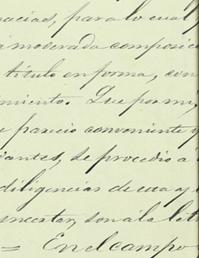 acias, para lo cual
a moderada composic
titulo en forma, con
miento. Que por mi,
e parecio conveniente y
iantes, se procedio a
diligencias de
insertar, son a la let
= En el campo